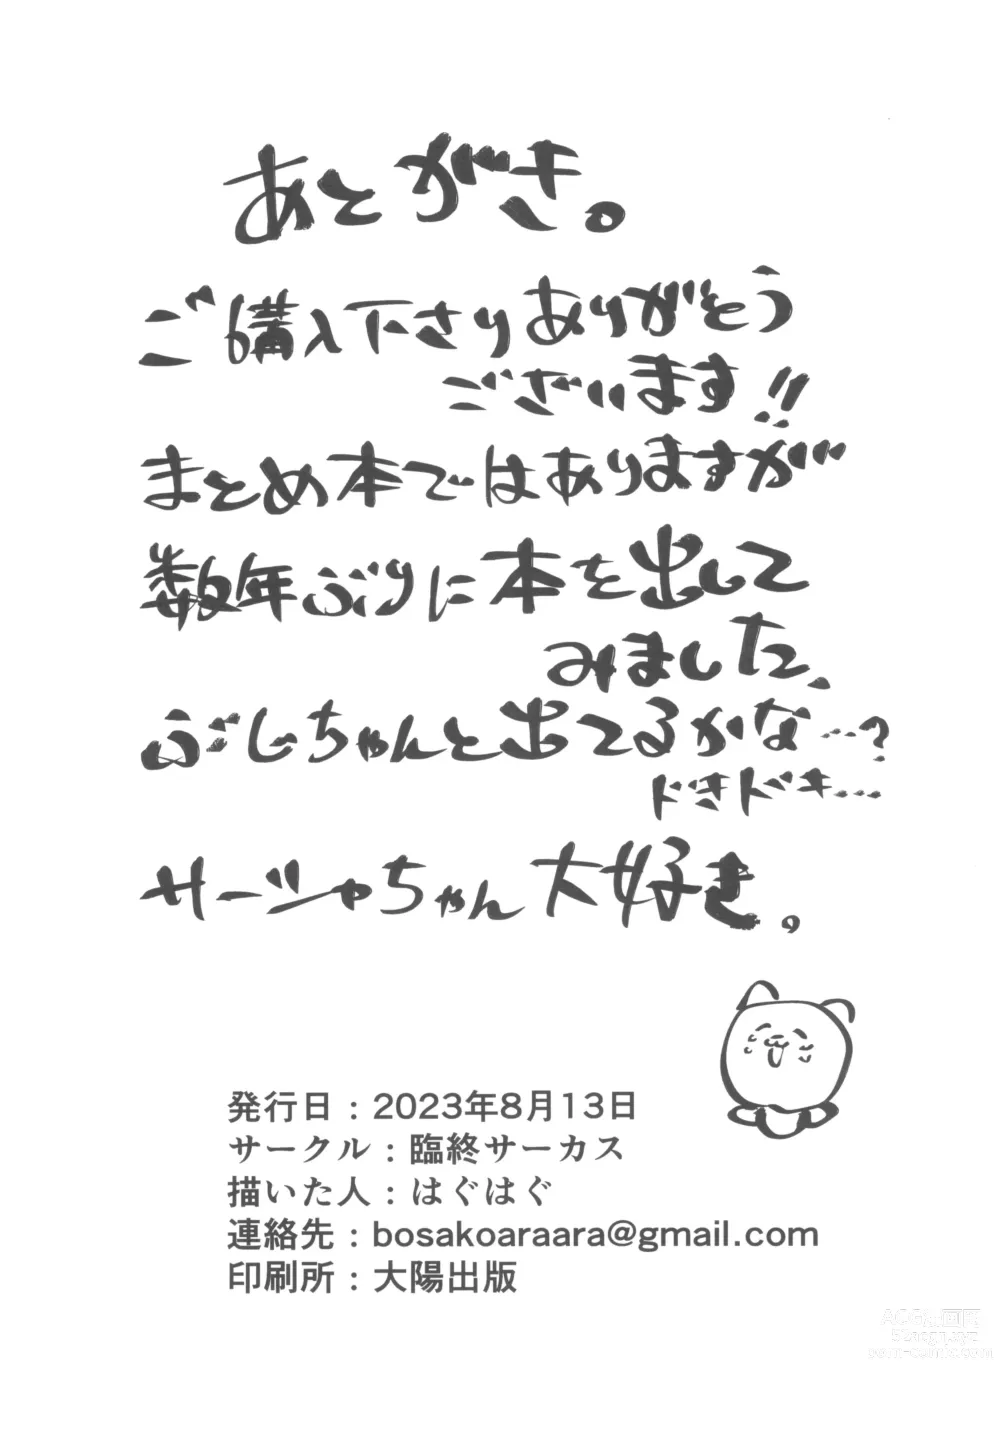 あとがき。
ご購入下さりありがとう
ございます!!
まとめ本ではありますが
数年ぶりに本を出して
みました、
ぶじちゃんと出てるかな…?
ドきドキ…
サーシャちゃん大好き。
発行日：2023年8月13日
サークル：臨終サーカス
描いた人：はぐはぐ
連絡先：bosakoaraara@gmail.com
印刷所：大陽出版